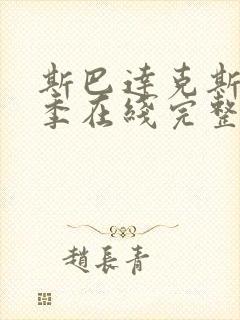 斯巴達克斯
季在綫完整
趙長青